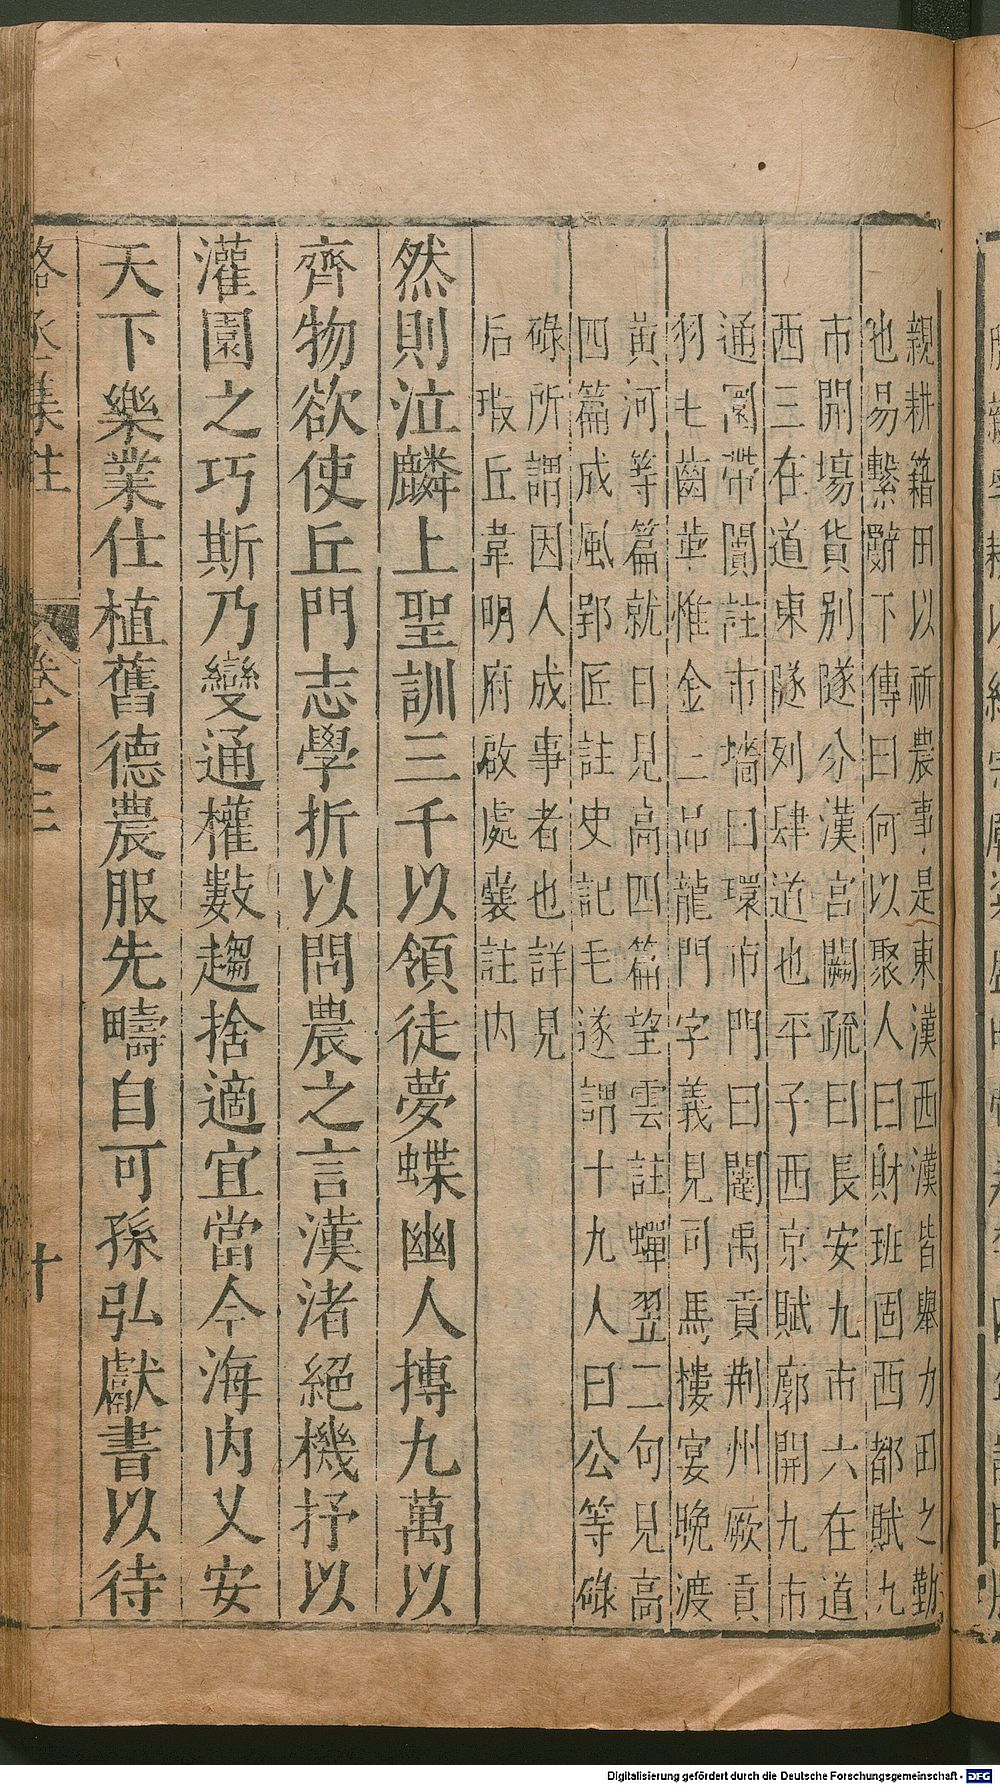 親耕籍田以祈農事是東漢西漢皆舉力田之勤
也易繫辭下傳曰何以聚人曰財班固西都賦九
市開場貨别隧分漢宮闕疏曰長安九市六在道
西三在道東隧列肆道也平子西京賦廓開九市
通闤帶闠註市墻曰環市門曰闤禹貢荆州厥貢
羽七齒革惟金三品龍門字義見司馬樓宴晚渡
黃河等篇就日見高四篇望雲註蟬翌二句見高
四篇成風郢匠註史記毛遂謂十九人曰公等碌
碌所謂因人成事者也詳見
后瑕丘韋明府啟處囊註内
然則泣麟上聖訓三千以領徒夢蝶幽人摶九萬以
齊物欲使丘門志學折以問農之言漢渚絕機抒以
灌園之巧斯乃變通權數趨捨適宜當今海内乂安
天下樂業仕植舊德農服先疇自可孫弘獻書以待
卷之三
十
Digitalisierung gefördert durch die Deutsche Forschungsgemeinschaft - DFG